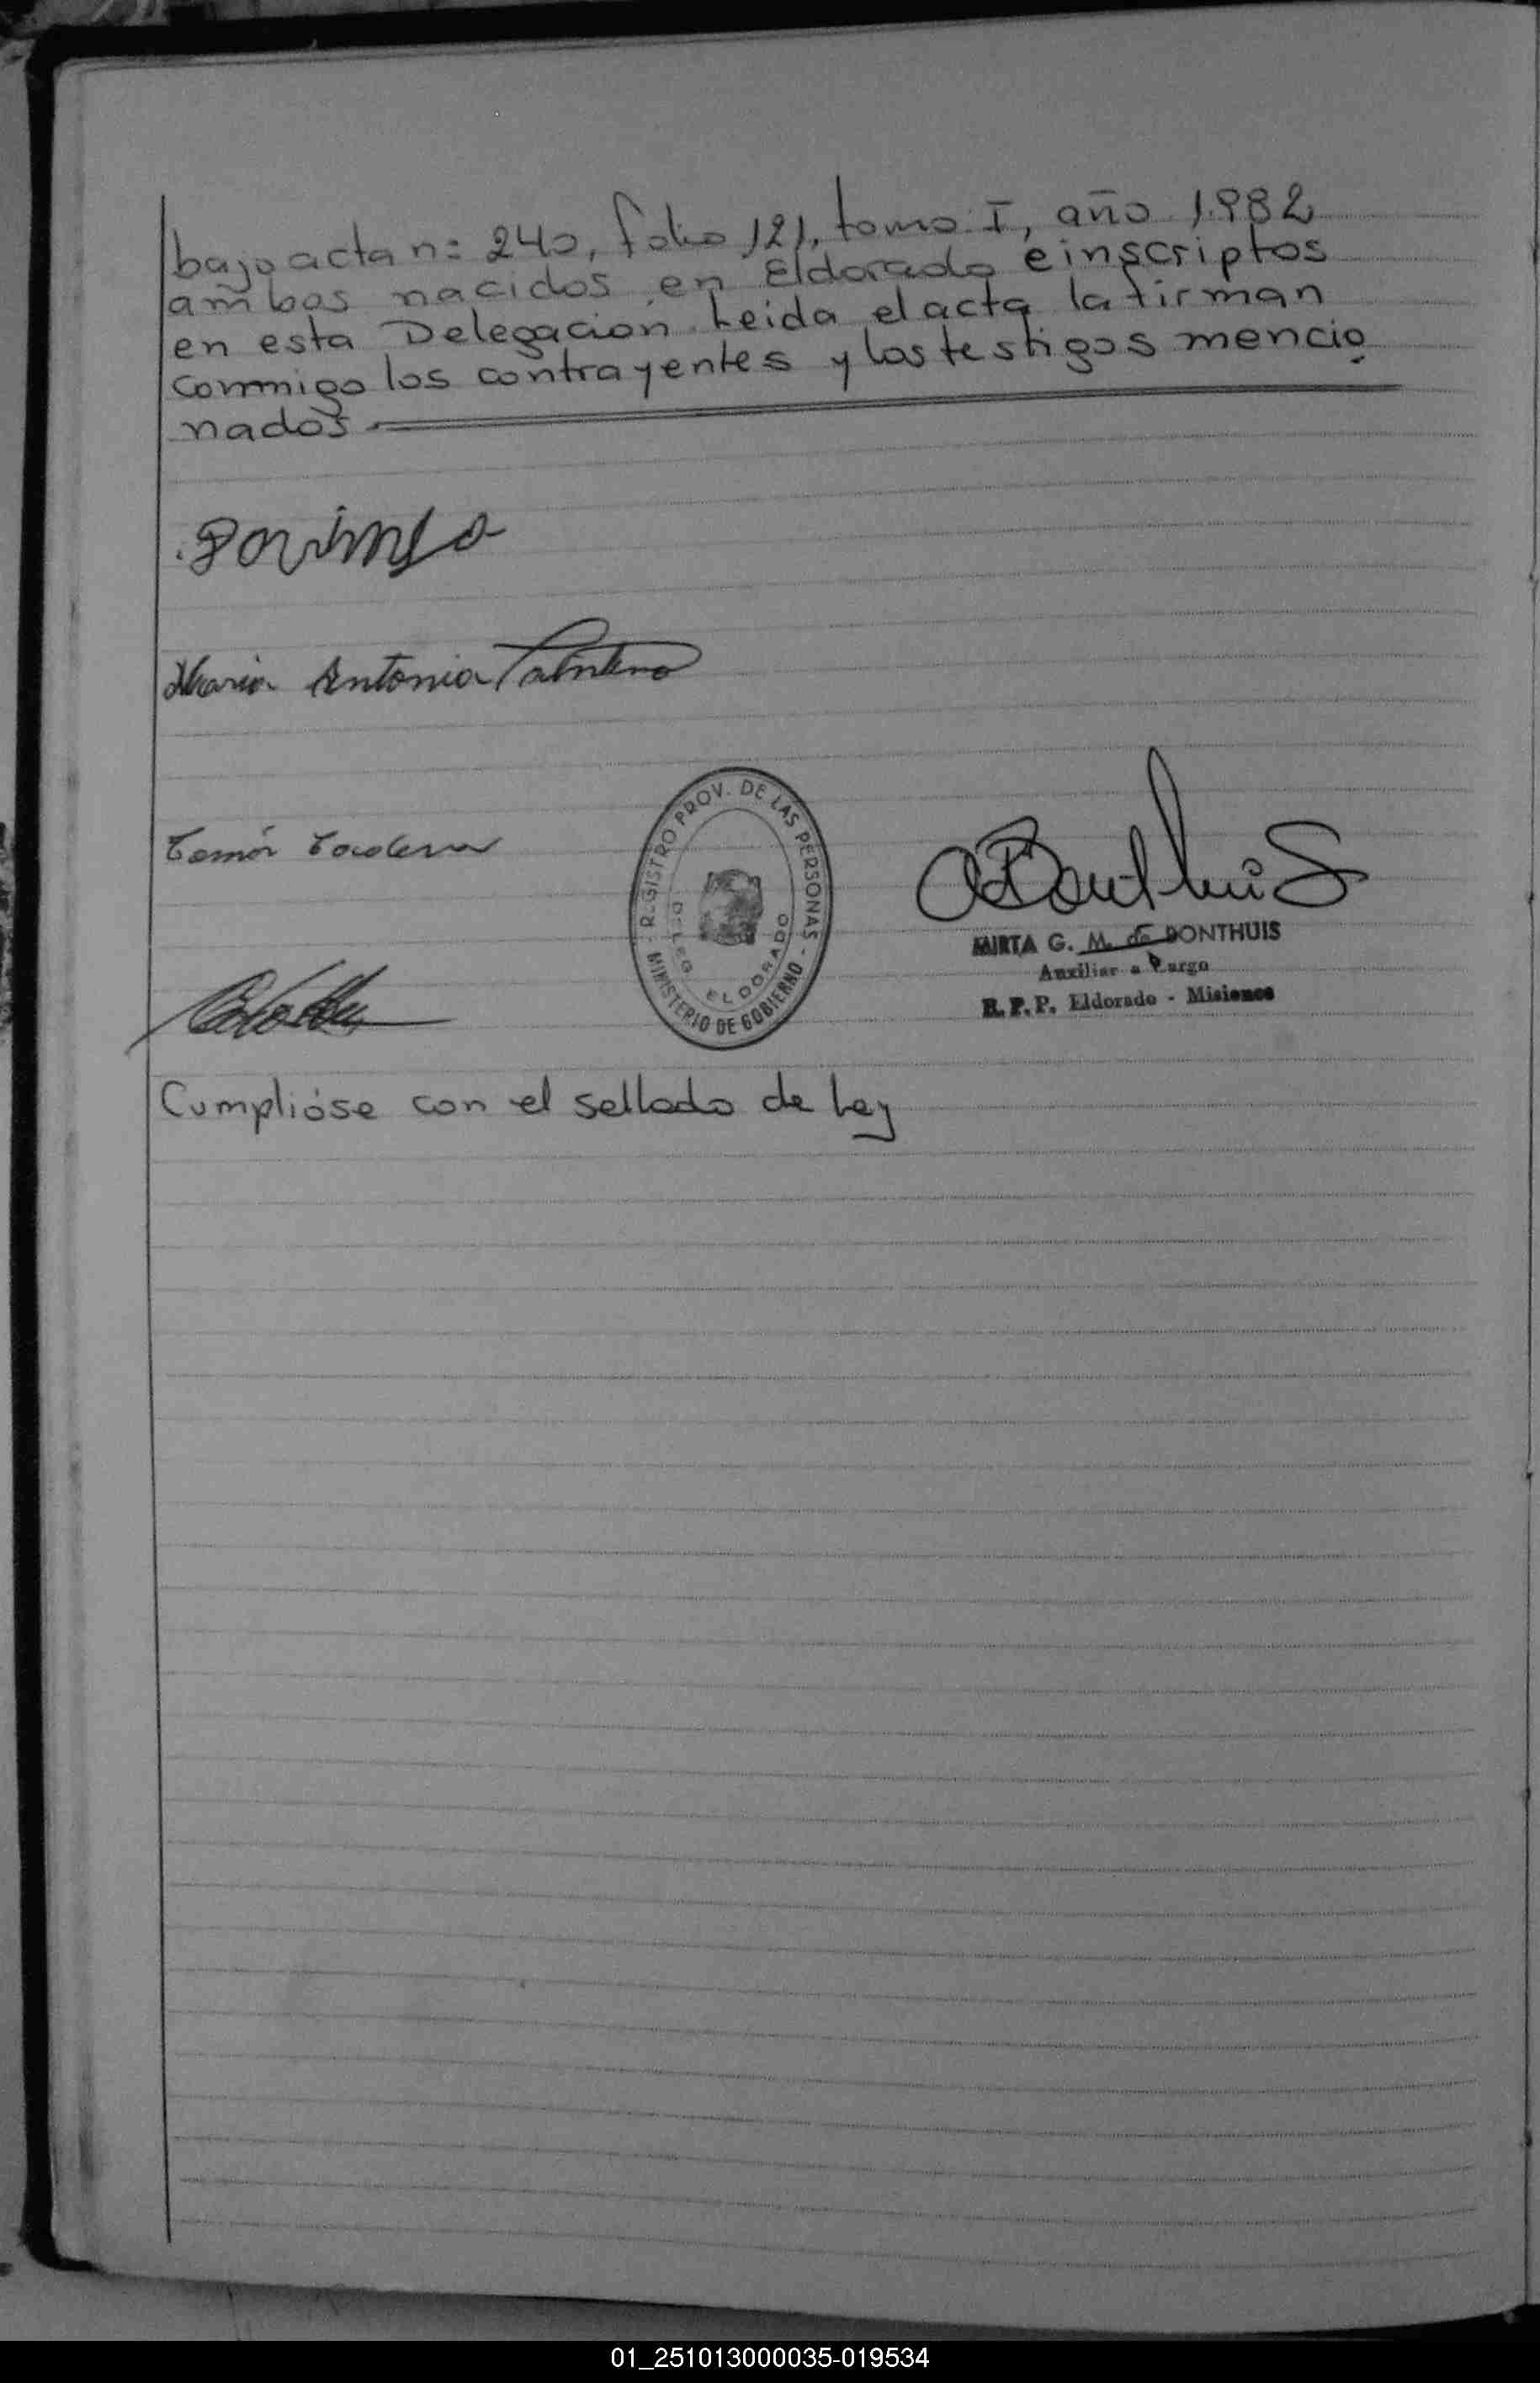 bajo acta n: 240, folio 121, tomo I, año 1.982
ambos nacidos en Eldorado e inscriptos
en esta Delegacion. Leida el acta la firman
conmigo los contrayentes y los testigos mencio
nados
Maria Antonia
REGISTRO PROV. DE LAS PERSONAS - MINISTERIO DE GOBIERNO -
DELEG. ELDORADO
MIRTA G. M. de BONTHUIS
Auxiliar a Cargo
R. P. P. Eldorado - Misiones
Cumplióse con el sellado de Ley
01_251013000035-019534